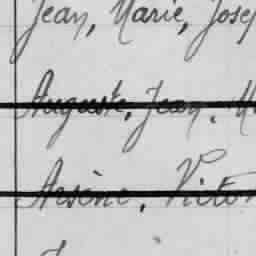 Jean, Marie, Josep
Auguste, Jean, M
Arsène, Victo